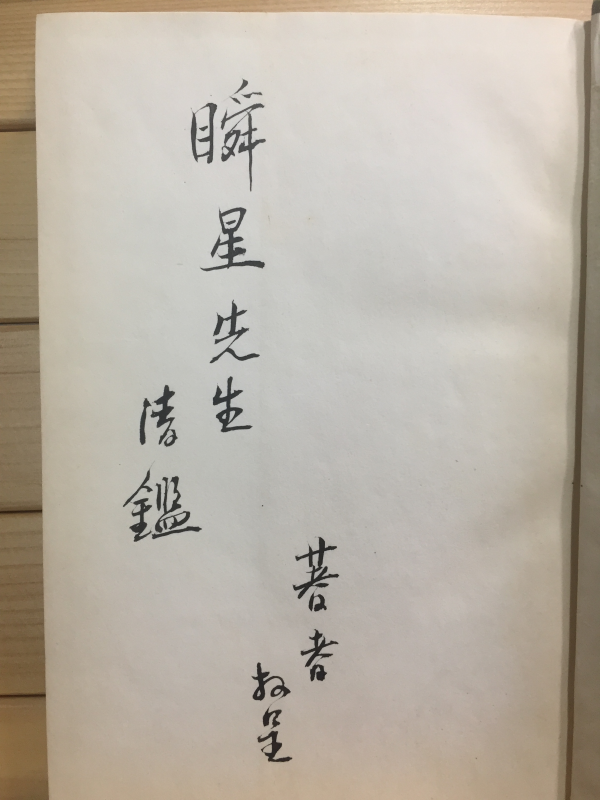 瞬星先生
清鑑
著者
拜呈